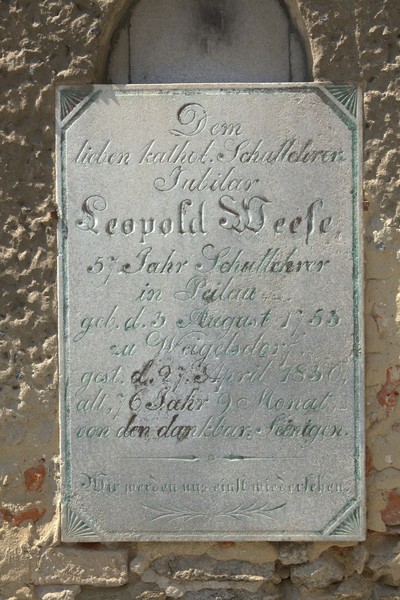 Dem
lieben kathol. Schullehrer
Jubilar
Leopold Weese,
57 Jahr Schullehrer
in Peilau
geb. d. 3 August 1753
zu Weigelsdorf
gest. d. 27 April 1830,
alt, 76 Jahr 9 Monat
von den dankbar. Seinigen.
Wir werden uns einst wiedersehen.